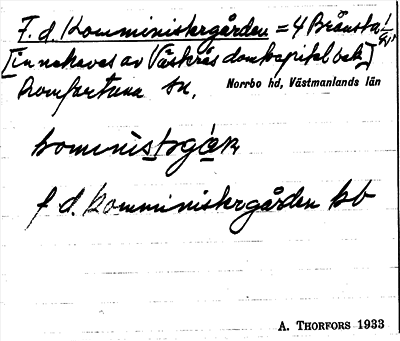 F. d. Komministergården = 4 Brånsta 1/4
[innehaves av Västerås domkapitel bek.]
Romfartuna sn, Norrbo hd, Västmanlands län
komministərgå̱ɳ
f d. Komministergården kb
A. THORFORS 1933